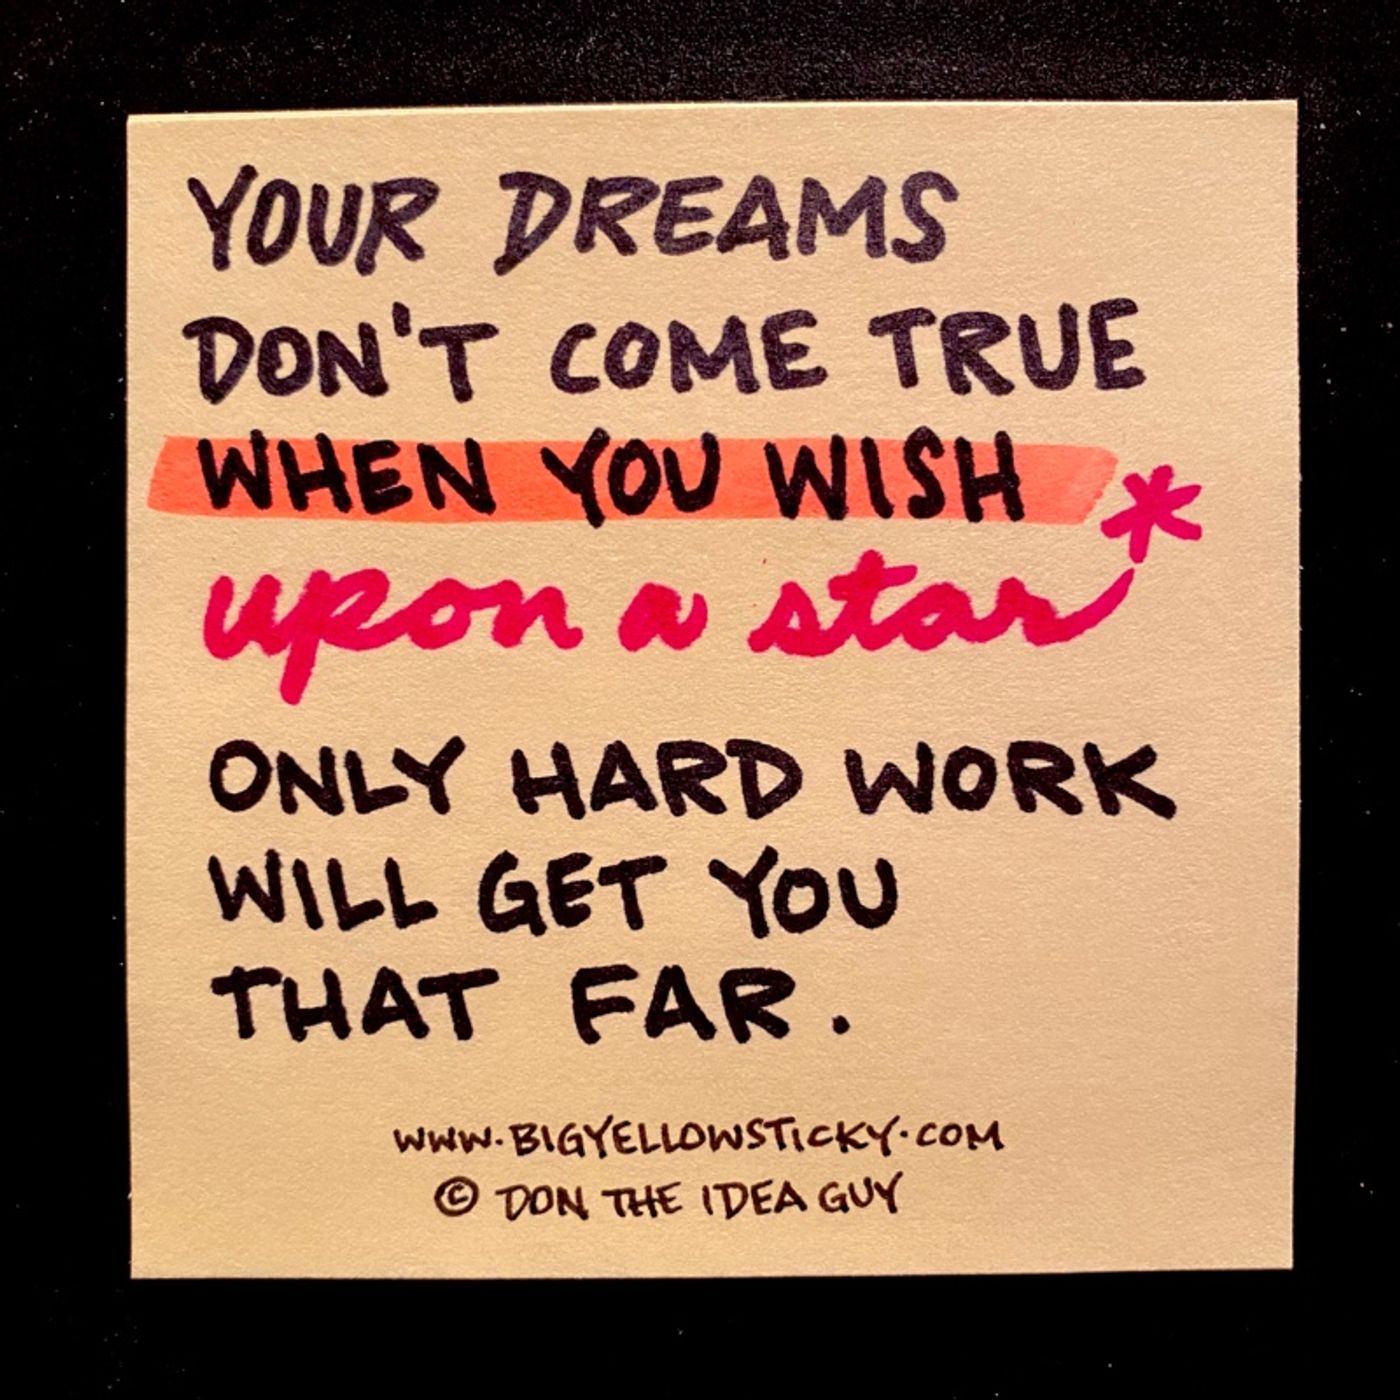 YOUR DREAMS
DON'T COME TRUE
WHEN YOU WISH
upon a star*
ONLY HARD WORK
WILL GET YOU
THAT FAR.
WWW.BIGYELLOWSTICKY.COM
© DON THE IDEA GUY